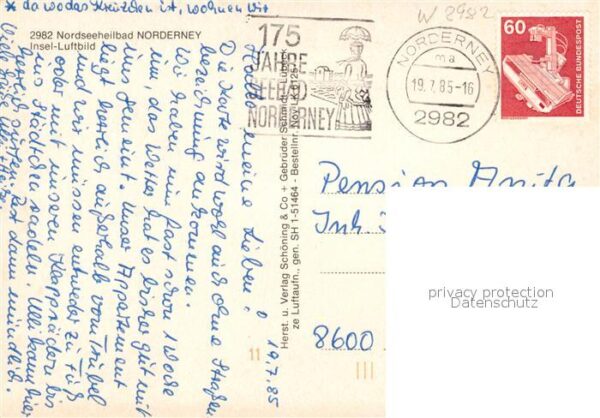 * da wo das Kreuzchen ist, wohnen wir
2982 Nordseeheilbad NORDERNEY
Insel-Luftbild
19.7.85
Hallo meine Lieben!
Die Karte wird wohl auch ohne Straßen
bezeichnung ankommen.
Wir haben nun fast schon 1 Woche
um, das Wetter hat es bisher gut mit
uns gemeint. Unser Appartement
liegt herrlich außerhalb vom Trubel
und wir müssen entweder zu Fuß
oder mit unseren Klapprädern bis
ins Städtchen radeln. Alles
mündlich.
Viele
Herst. u. Verlag Schöning & Co + Gebrüder Schmidt, Lübeck
ze Luftaufn., gen. SH 1-51464 - Bestellnr.
175
JAHRE
SEEBAD
NORDERNEY
W 2982
NORDERNEY
ma
19.7.85-16
2982
60
DEUTSCHE BUNDESPOST
Pension Anita
Inh.
8600
11
III
privacy protection
Datenschutz